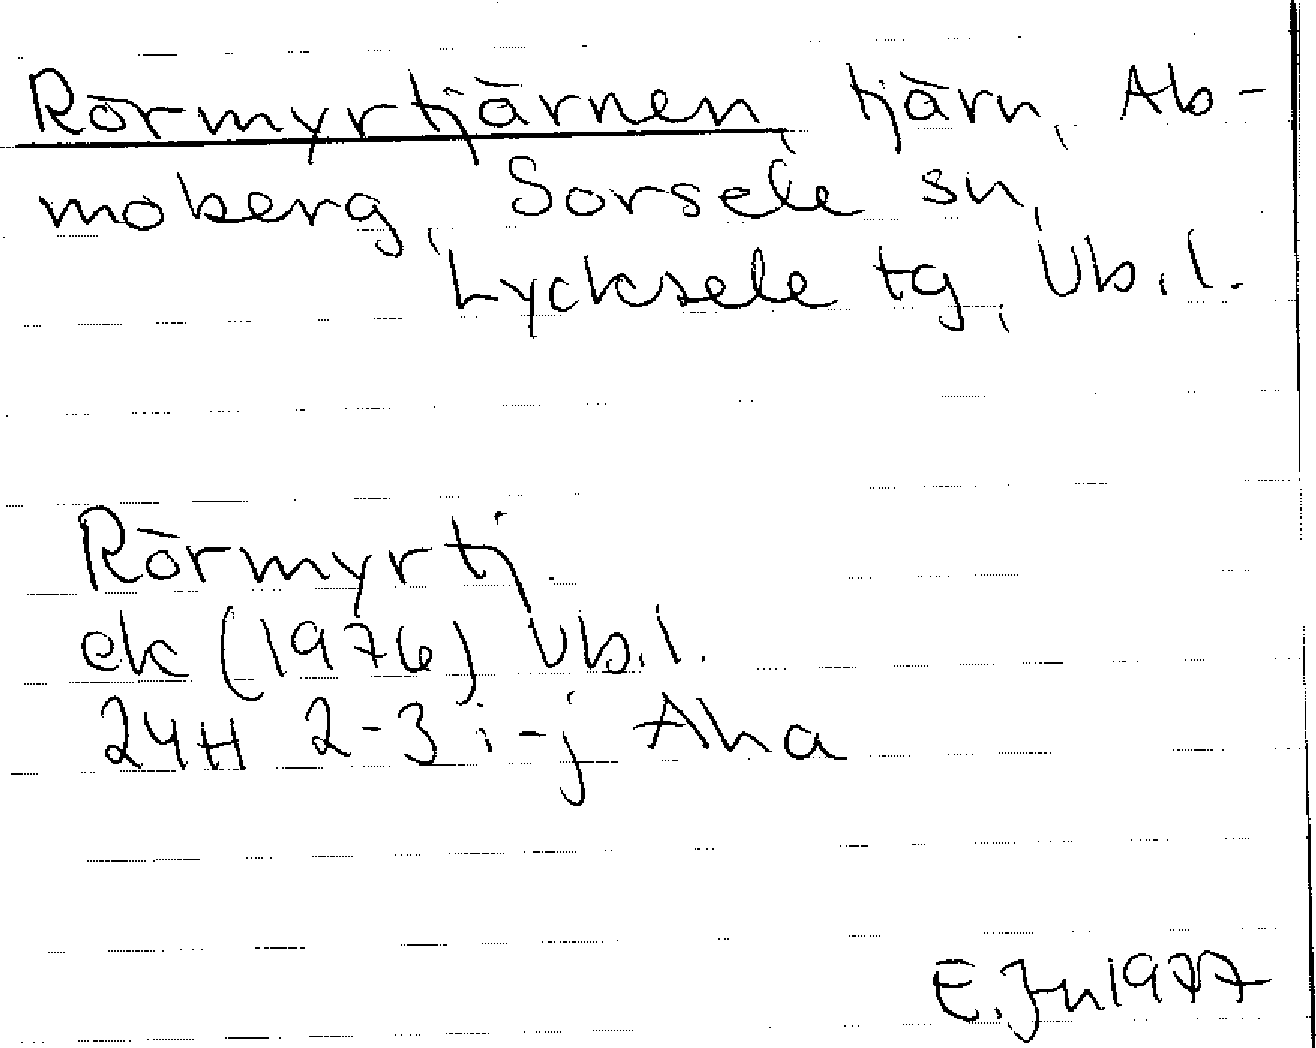 Rörmyrtjärnen, tjärn, Ab-
moberg, Sorsele sn,
Lycksele tg, Vb.l.
Rörmyrtj.
ek (1976) Vb.l.
24H 2-3 i-j Aha
E. Jn 1977